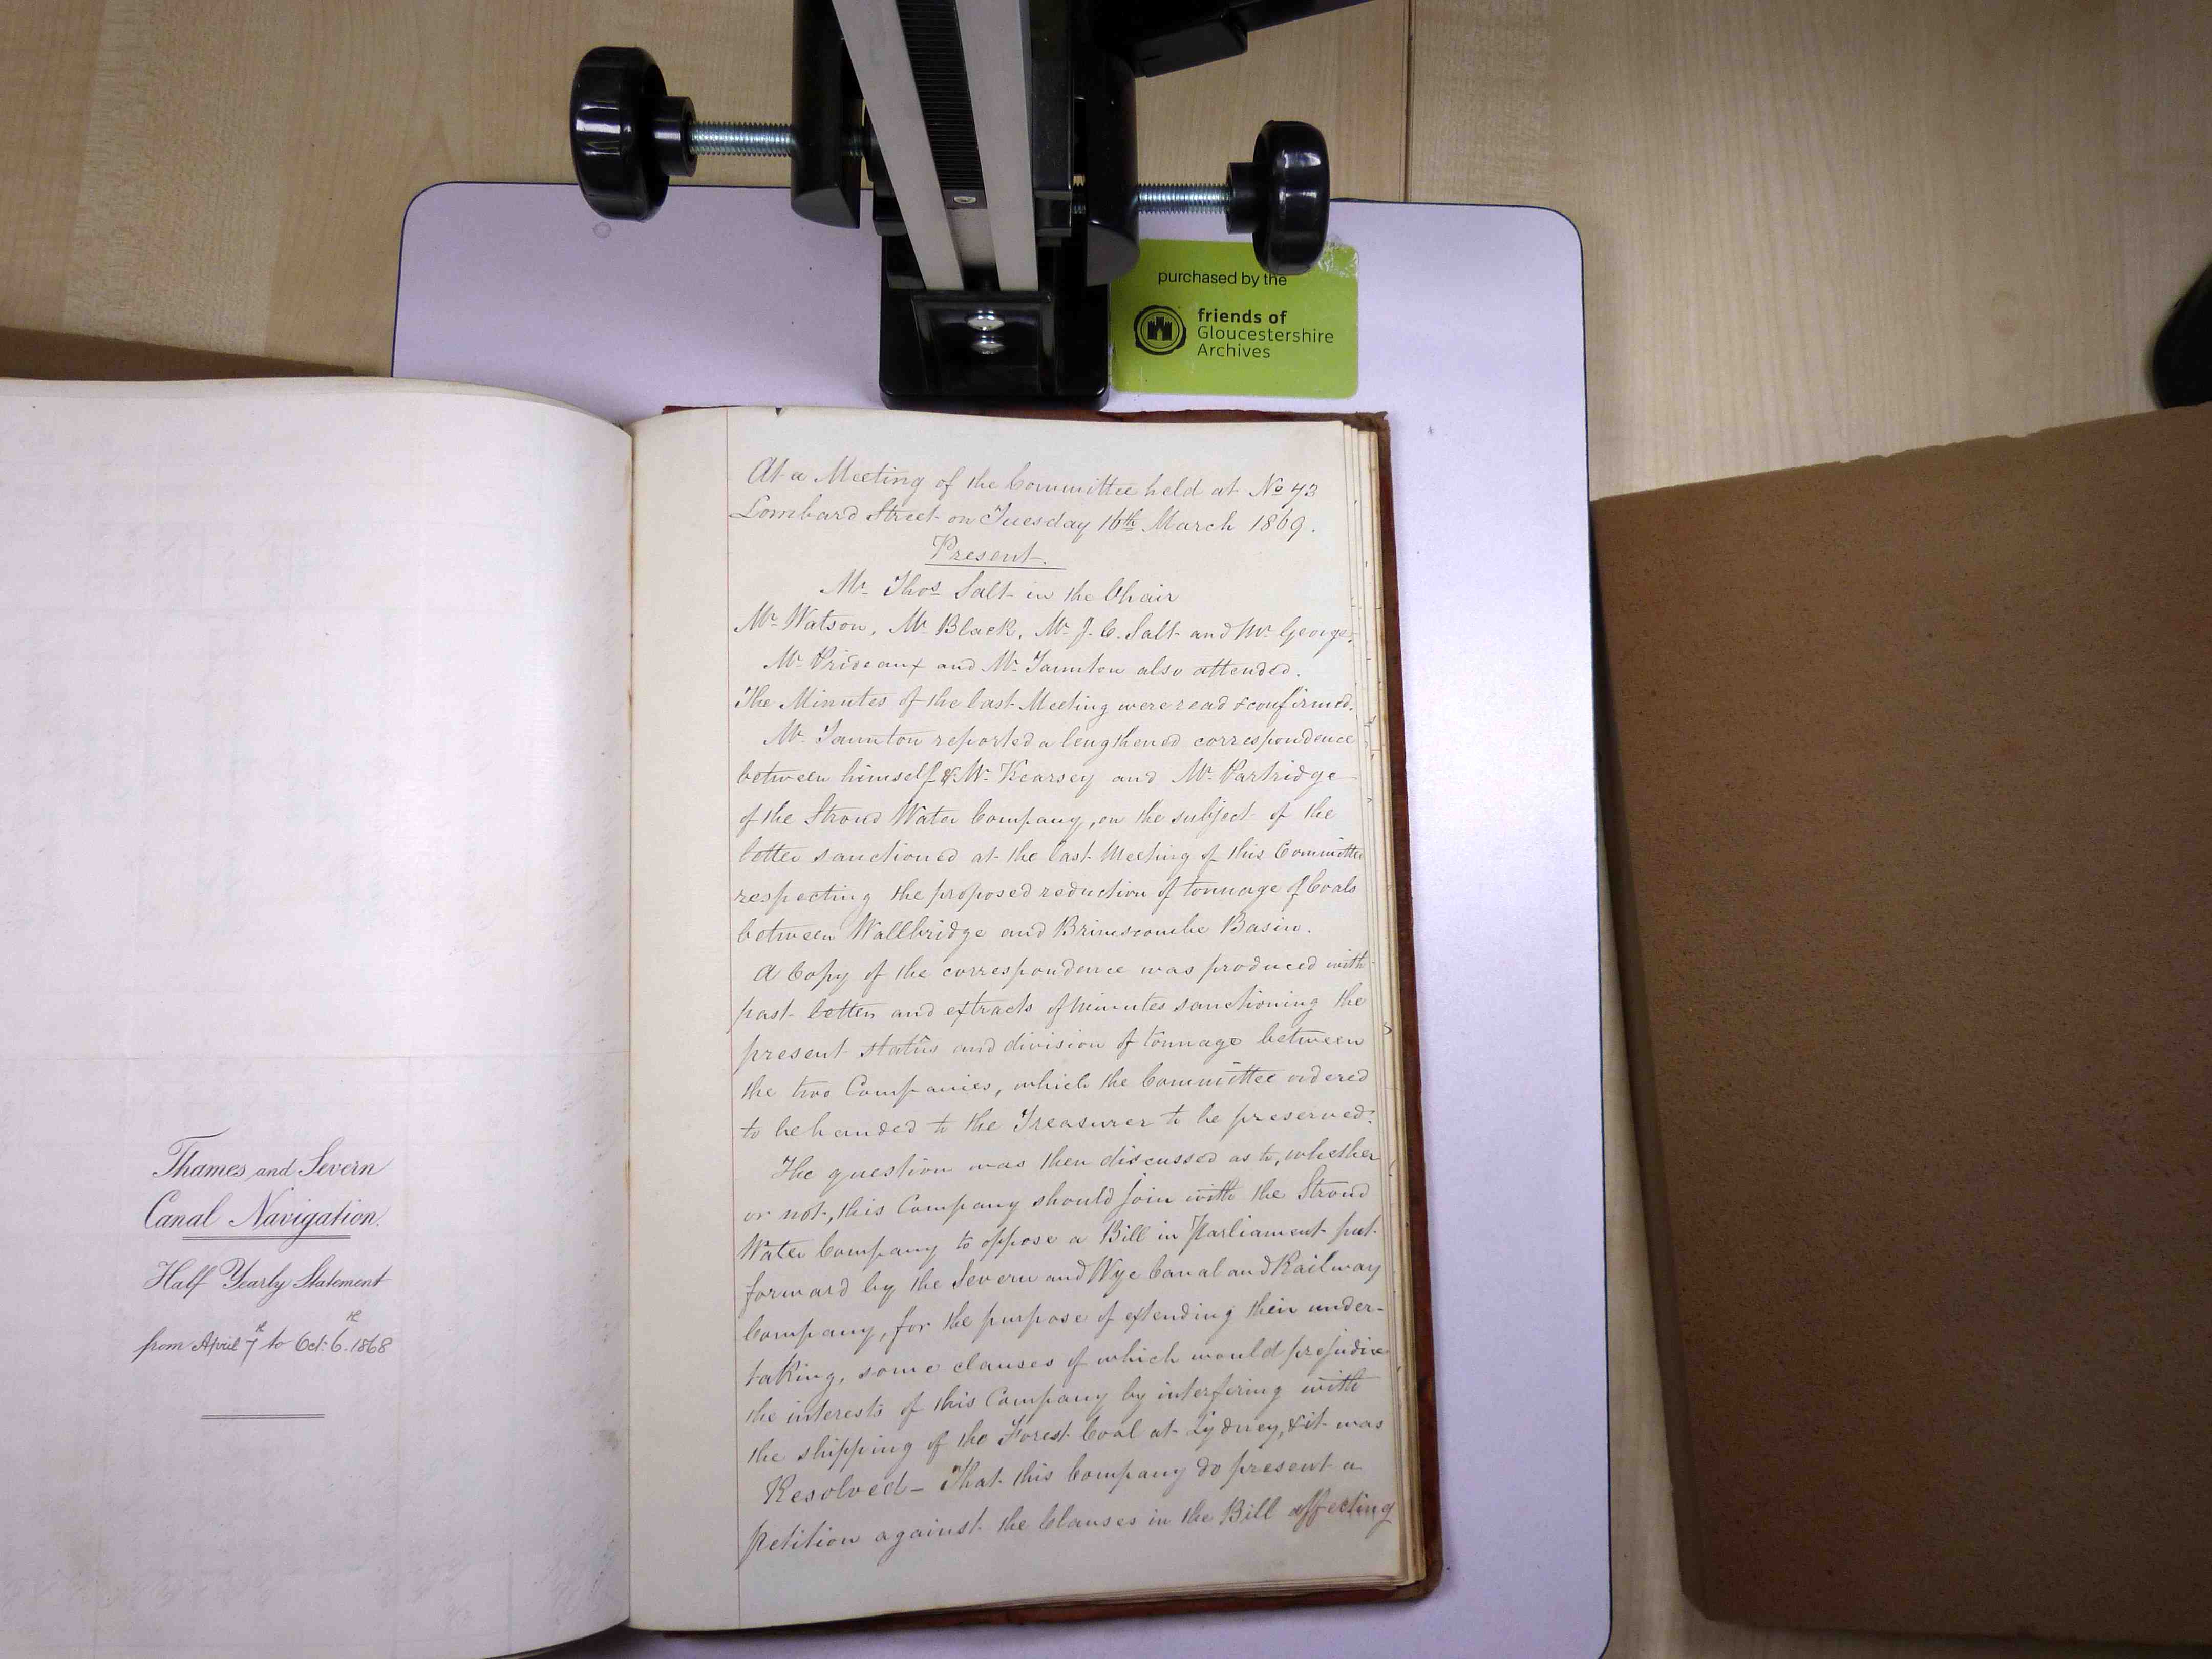 purchased by the
friends of
Gloucestershire
Archives
Thames and Severn
Canal Navigation.
Half Yearly Statement
from April 7th to Oct: 6th 1868
At a Meeting of the Committee held at No 43
Lombard Street on Tuesday 16th March 1869.
Present.
Mr Thos Salt in the Chair
Mr Watson, Mr Black, Mr J. C. Salt and Mr George,
Mr Prideaux and Mr Taunton also attended.
The Minutes of the last Meeting were read & confirmed.
Mr Taunton reported a lengthened correspondence
between himself & Mr Kearsey and Mr Partridge
of the Stroud Water Company, on the subject of the
letter sanctioned at the last Meeting of this Committee
respecting the proposed reduction of tonnage of Coals
between Wallbridge and Brimscombe Basin.
A Copy of the correspondence was produced with
past letters and extracts of Minutes sanctioning the
present status and division of tonnage between
the two Companies, which the Committee ordered
to be handed to the Treasurer to be preserved.
The question was then discussed as to, whether
or not, this Company should join with the Stroud
Water Company to oppose a Bill in Parliament put
forward by the Severn and Wye Canal and Railway
Company, for the purpose of extending their under-
taking, some clauses of which would prejudice
the interests of this Company by interfering with
the shipping of the Forest Coal at Lydney, & it was
Resolved - That this Company do present a
petition against the Clauses in the Bill affecting